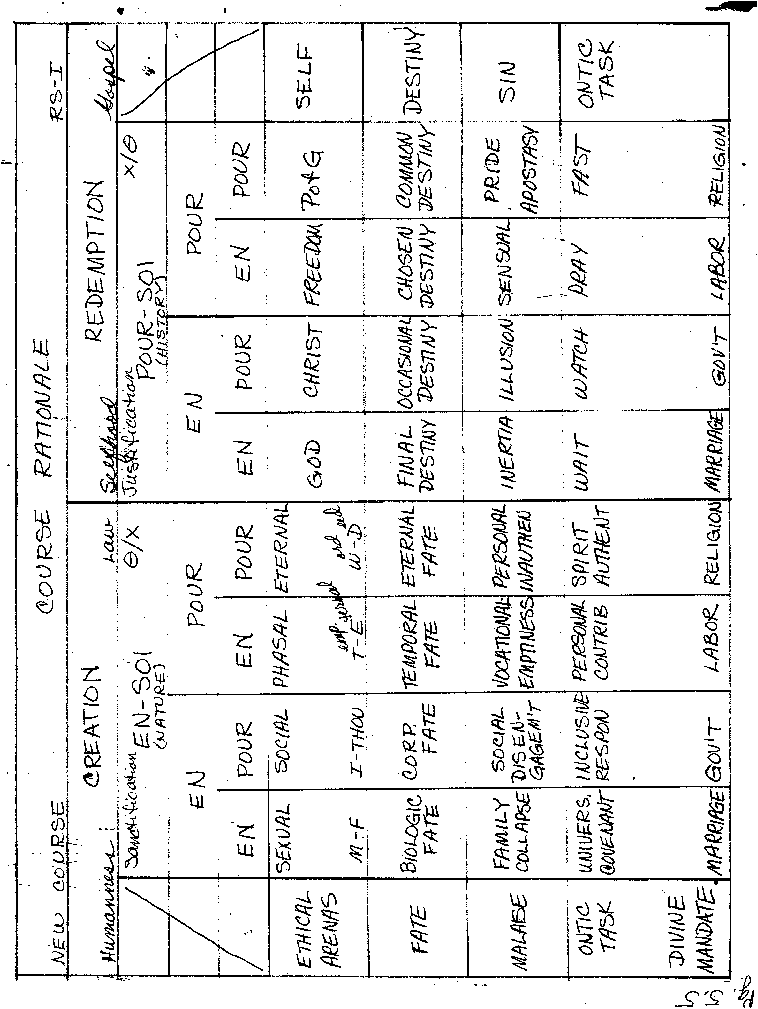 NEW COURSE COURSE RATIONALE RS-I
Humanness: CREATION Law Selfhood REDEMPTION Gospel
Sanctification EN-SOI Θ/X Justification POUR-SOI X/Θ
(NATURE) (HISTORY)
EN POUR EN POUR
EN POUR EN POUR EN POUR EN POUR
ETHICAL SEXUAL SOCIAL PHASAL ETERNAL GOD CHRIST FREEDOM PotG SELF
ARENAS M-F I-THOU T-E W-D
FATE BIOLOGIC CORP. TEMPORAL ETERNAL FINAL OCCASIONAL CHOSEN COMMON DESTINY
FATE FATE FATE FATE DESTINY DESTINY DESTINY DESTINY
MALAISE FAMILY SOCIAL VOCATIONAL PERSONAL INERTIA ILLUSION SENSUAL PRIDE SIN
COLLAPSE DISEN- EMPTINESS INAUTHEN APOSTASY
GAGEM'T
ONTIC UNIVERS. INCLUSIVE PERSONAL SPIRIT WAIT WATCH PRAY FAST ONTIC
TASK COVENANT RESPON CONTRIB AUTHENT TASK
DIVINE
MANDATE MARRIAGE GOV'T LABOR RELIGION MARRIAGE GOV'T LABOR RELIGION
Pg. 55